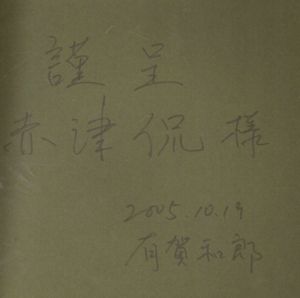 謹呈
赤津侃様
2005.10.19
有賀和郎